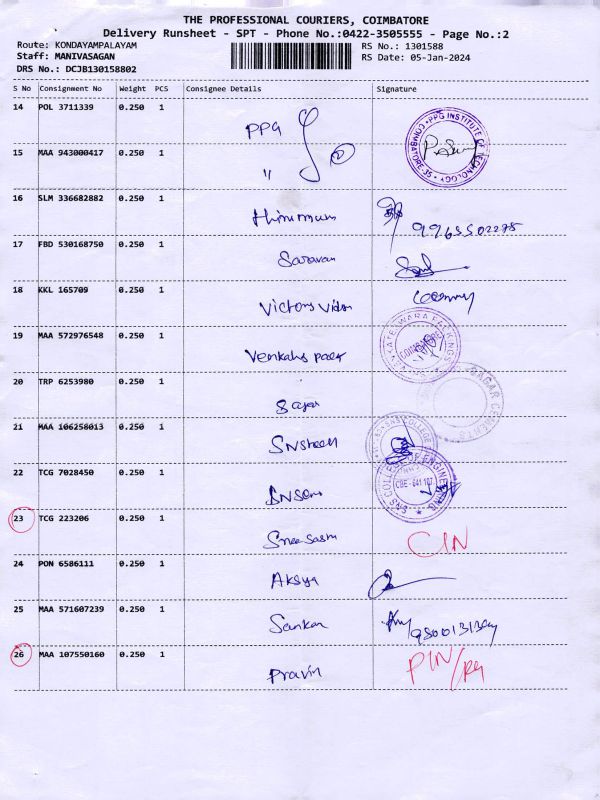 THE PROFESSIONAL COURIERS, COIMBATORE
Delivery Runsheet - SPT - Phone No.:0422-3505555 - Page No.:2
Route: KONDAYAMPALAYAM RS No.: 1301588
Staff: MANIVASAGAN RS Date: 05-Jan-2024
DRS No.: DCJB130158802
S No Consignment No Weight PCS Consignee Details Signature
14 POL 3711339 0.250 1 PPG
PPG INSTITUTE OF TECHNOLOGY COIMBATORE-35
15 MAA 943000417 0.250 1 "
16 SLM 336682882 0.250 1
17 FBD 530168750 0.250 1 Saravan
18 KKL 165709 0.250 1 Victory
19 MAA 572976548 0.250 1
20 TRP 6253980 0.250 1
21 MAA 106258013 0.250 1
22 TCG 7028450 0.250 1
SNS COLLEGE OF ENGINEERING
CBE - 641 107
23 TCG 223206 0.250 1 CIN
24 PON 6586111 0.250 1 Aksya
25 MAA 571607239 0.250 1 Sankar
26 MAA 107550160 0.250 1 Pravin PIN/